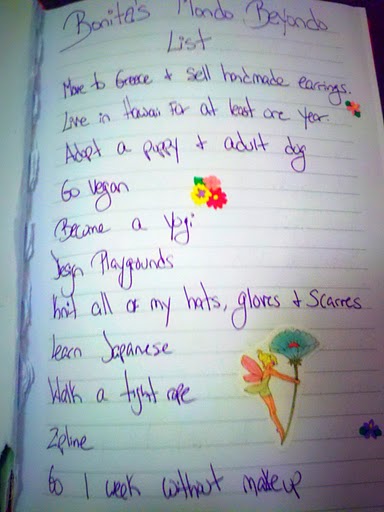 Bonita's Mondo Beyondo
List
Move to Greece + sell handmade earrings.
Live in Hawaii for at least one year.
Adopt a puppy + adult dog
Go Vegan
Become a Yogi
Design Playgrounds
Knit all of my hats, gloves + Scarves
Learn Japanese
Walk a tight rope
Zipline
Go 1 week without makeup